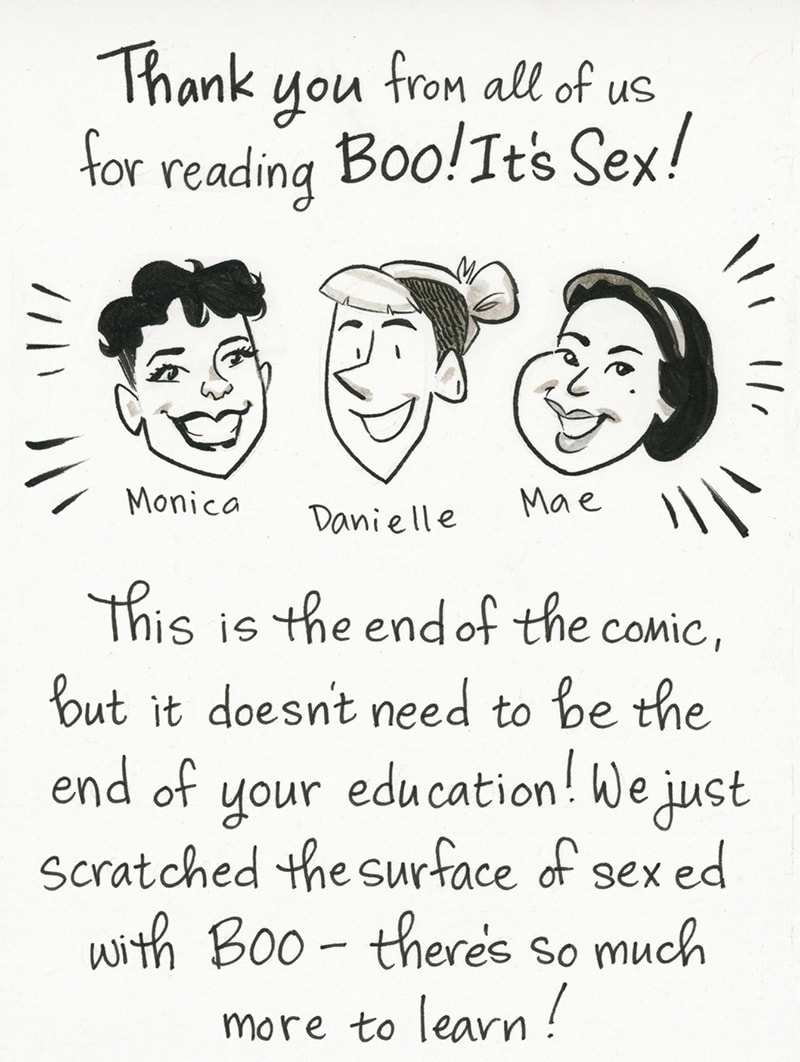 Thank you from all of us
for reading Boo! It's Sex!
Monica
Danielle
Mae
This is the end of the comic,
but it doesn't need to be the
end of your education! We just
scratched the surface of sex ed
with BOO – there's so much
more to learn!